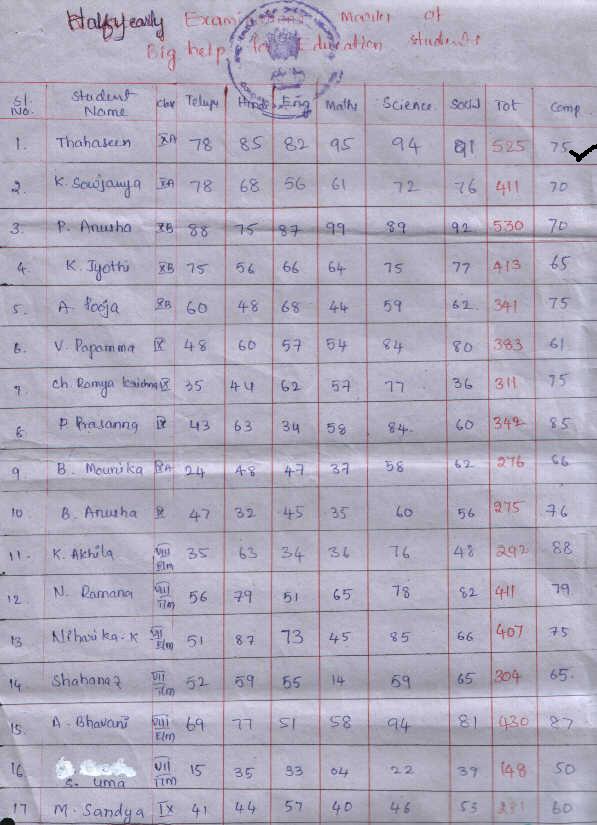 Halfyearly Examinations Marks of
Big help for Education students
Sl. No. Student Name Class Telugu Hindi Eng Maths Science Social Tot Comp
1. Thahaseen XA 78 85 82 95 94 91 525 75
2. K. Sowjanya XA 78 68 56 61 72 76 411 70
3. P. Anusha XB 88 75 87 99 89 92 530 70
4. K. Jyothi XB 75 56 66 64 75 77 413 65
5. A. Pooja XB 60 48 68 44 59 62 341 75
6. V. Papamma IX 48 60 57 54 84 80 383 61
7. Ch. Ramya Krishna IX 35 44 62 57 77 36 311 75
8 P Prasanna IX 43 63 34 58 84 60 342 85
9 B. Mounika IXA 24 48 47 37 58 62 276 66
10. B. Anusha IX 47 32 45 35 60 56 275 76
11. K. Akhila VIII E/m 35 63 34 36 76 48 292 88
12. N. Ramana VIII T/m 56 79 51 65 78 82 411 79
13 Niharika.K VII E/m 51 87 73 45 85 66 407 75
14 Shahanaz VII T/m 52 59 55 14 59 65 304 65.
15. A. Bhavani VIII E/m 69 77 51 58 94 81 430 87
16 S. Uma VII T/m 15 35 33 04 22 39 148 50
17 M. Sandya IX 41 44 57 40 46 53 281 60